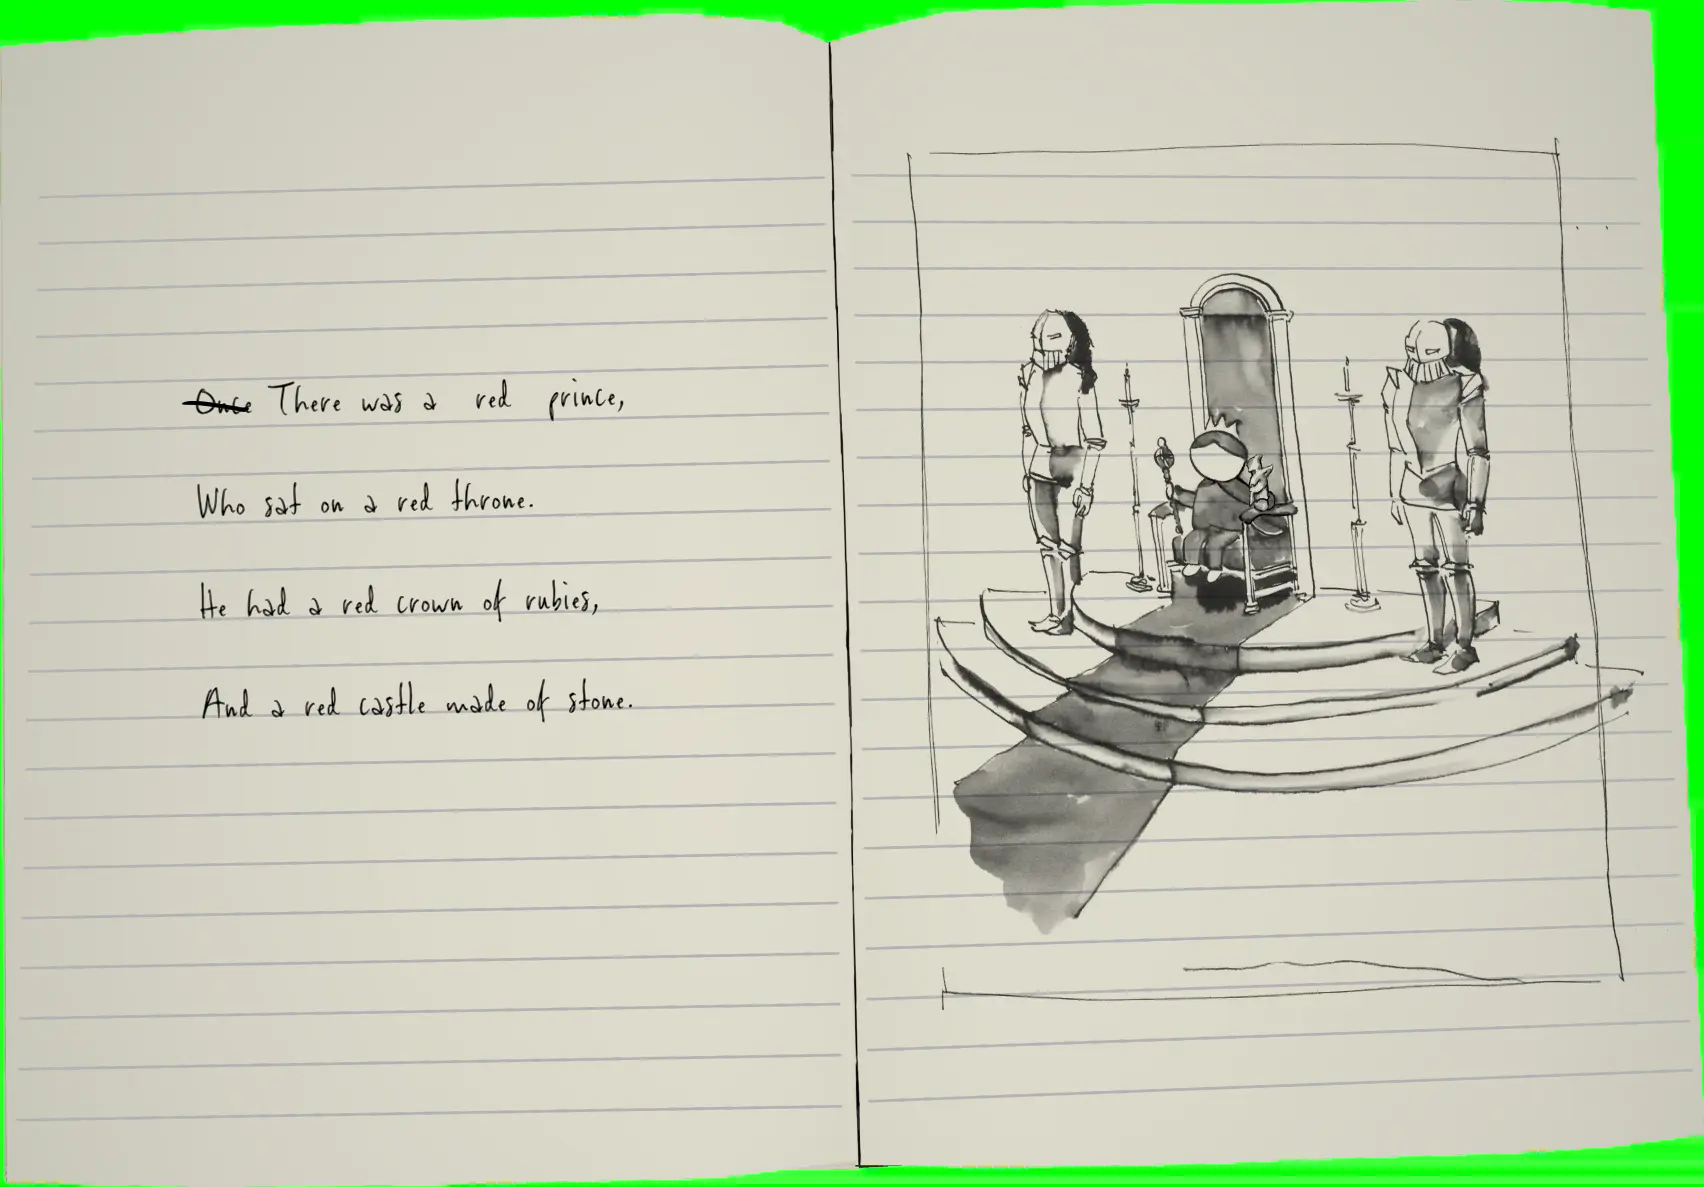 Once There was a red prince,
Who sat on a red throne.
He had a red crown of rubies,
And a red castle made of stone.